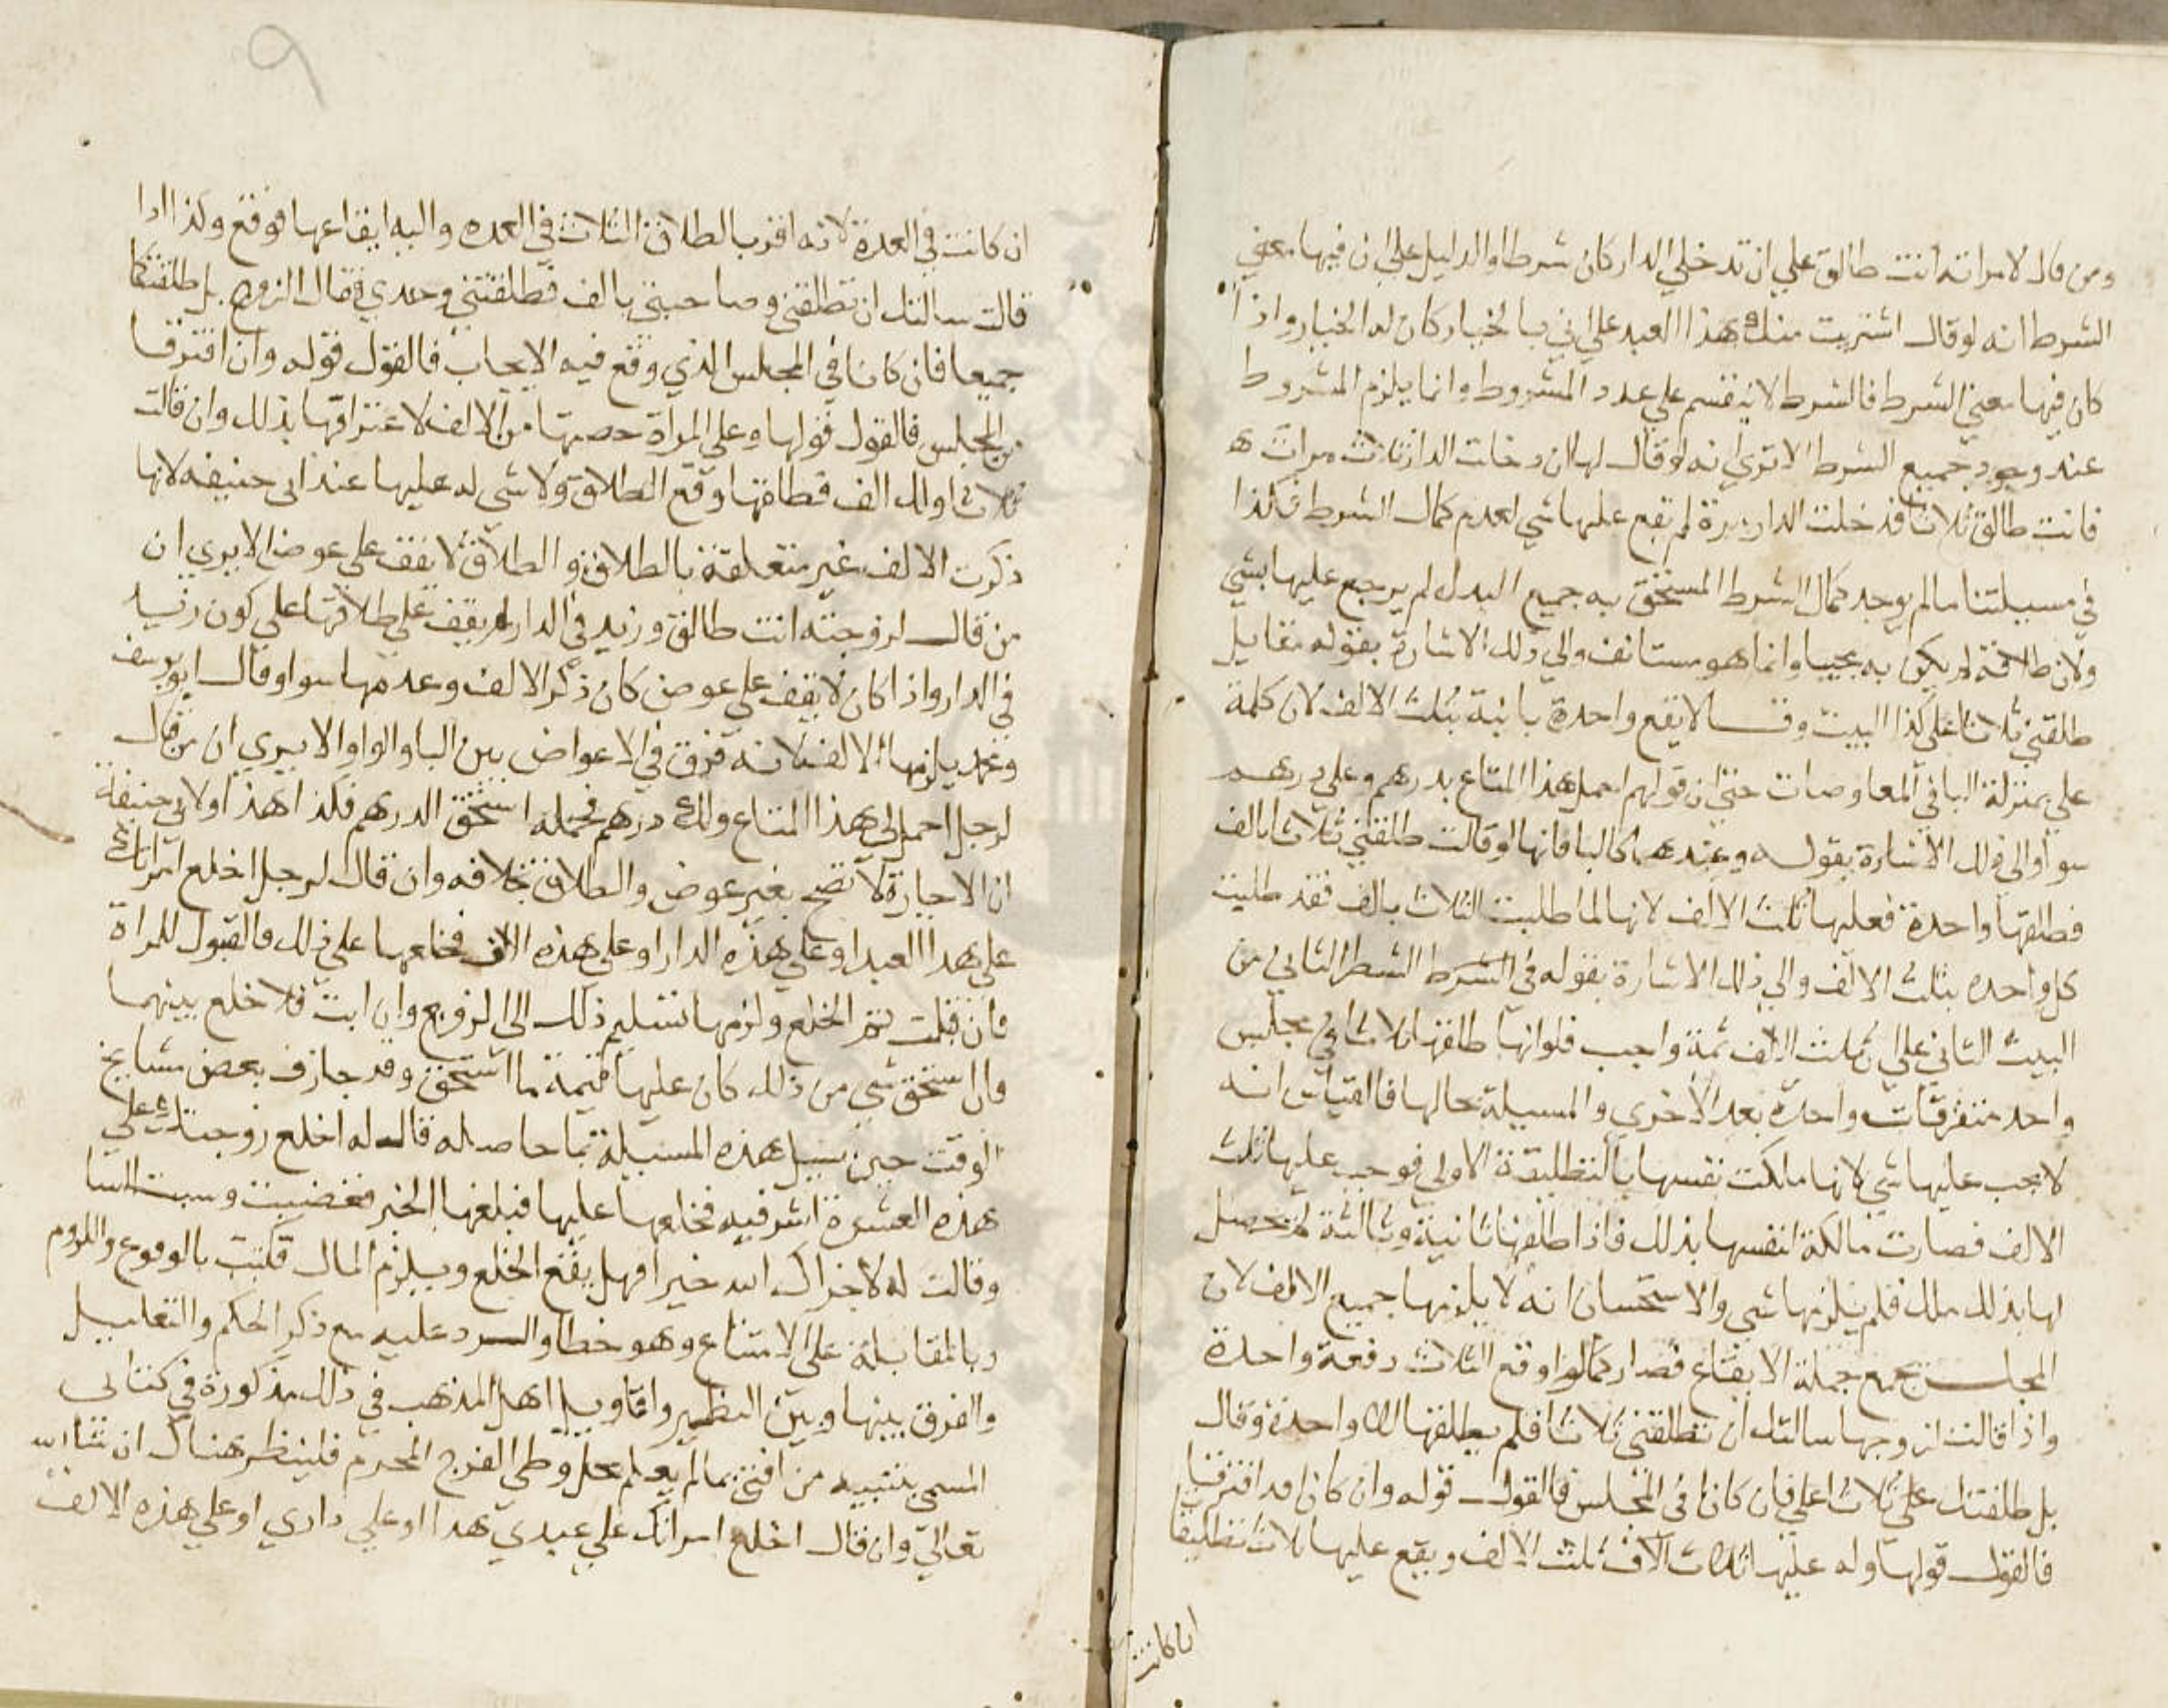 ومن قال لامراته انت طالق علي ان تدخلي الدار كان شرطا والدليل علي ان فيها معني
الشرط انه لو قال اشتريت منك هذا العبد علي اني بالخيار كان له الخيار واذا
كان فيها معني الشرط فالشرط لا ينقسم علي عدد المشروط وانما يلزم المشروط
عند وجود جميع الشرط الا تري انه لو قال لها ان دخلت الدار ثلاث مرات
فانت طالق ثلاثا فدخلت الدار مرة لم يقع عليها شي لعدم كمال الشرط فكذا
في مسيلتنا ما لم يوجد كمال الشرط المستحق به جميع البدل لم يرجع عليها بشي
ولان طلاقه لم يكن به مجيبا وانما هو مستانف والي ذلك الاشارة بقوله مقابل
طلقني ثلاثا علي كذا البيت وقالا يقع واحدة باينة بثلث الالف لان كلمة
علي بمنزلة البا في المعاوضات حتي ان قولهم احمل هذا المتاع بدرهم وعلي درهم
سوا والي ذلك الاشارة بقوله وعندهما كالبا فانها لو قالت طلقني ثلاثا بالف
فطلقها واحدة فعليها ثلث الالف لانها لما طلبت الثلاث بالف فقد طلبت
كل واحده بثلث الالف والي ذلك الاشارة بقوله في الشرط الشطر الثاني من
البيت الثاني علي ان ثلث الالف ثمة واجب فلو انها طلقها ثلاثا في مجلس
واحد متفرقات واحدة بعد الاخري والمسيلة بحالها فالقياس انه
لا يجب عليها شي لانها ملكت نفسها بالتطليقة الاولي فوجب عليها ثلث
الالف فصارت مالكة لنفسها بذلك فاذا طلقها ثانية وثالثة لم يحصل
لها بذلك ملك فلم يلزمها شي والاستحسان انه لا يلزمها جميع الالف لان
المجلس يجمع جملة الايقاع فصار كما لو اوقع الثلاث دفعة واحدة
واذا قالت لزوجها سالتك ان تطلقني ثلاثا فلم يطلقها الا واحدة وقال
بل طلقتك علي ثلاثا علي فان كانا في المجلس فالقول قوله وان كانا قد افترقا
فالقول قولها وله عليها ثلاث الاف ثلث الالف ويقع عليها ثلاث تطليقات
ان كانت
ان كانت في العدة لانه اقر بالطلاق الثلاث في العده واليه ايقاعها فوقع وكذا اذا
قالت سالتك ان تطلقني وصاحبتي بالف فطلقتني وحدي فقال الزوج بل طلقتكما
جميعا فان كانا في المجلس الذي وقع فيه الايجاب فالقول قوله وان افترقا
من المجلس فالقول قولها وعلي المراة حصتها من الالف لاعترافها بذلك وان قالت
ثلاثا ولك الف فطلقها وقع الطلاق ولا شي له عليها عند ابي حنيفه لانها
ذكرت الالف غير متعلقة بالطلاق والطلاق لا يقف علي عوض الا يري ان
من قال لزوجته انت طالق وزيد في الدار لم يقف علي طلاقها علي كون زيد
في الدار واذا كان لا يقف علي عوض كان ذكر الالف وعدمها سوا وقال ابو يوسف
ومحمد يلزمها الالف لانه فرق في الاعواض بين البا والواو الا يري ان من قال
لرجل احمل لي هذا المتاع ولك درهم فحمله استحق الدرهم فكذا هذا ولابي حنيفة
ان الاجارة لا تصح بغير عوض والطلاق بخلافه وان قال لرجل اخلع امراتك
علي هذا العبد او علي هذه الدار او علي هذه الالف فخلعها علي ذلك فالقبول للمراة
فان قبلت تم الخلع ولزمها تسليم ذلك الي الزوج وان ابت فلا خلع بينهما
وان استحق شي من ذلك كان عليها قيمة ما استحق وقد جازف بعض مشايخ
الوقت حين سيل هذه المسيلة بما حاصله قال له اخلع زوجتك علي
هذه العشرة اشرفيه فخلعها عليها فبلغها الخبر فغضبت وسبت السا
وقالت له لا جزاك الله خيرا فهل يقع الخلع ويلزم المال فكتب بالوقوع واللزوم
وبالمقابلة علي الامتناع وهو خطا والرد عليه مع ذكر الحكم والتعليل
والفرق بينها وبين النظير واقاويل اهل المذهب في ذلك مذكورة في كتابي
المسمي بتنبيه من افتي بما لم يعلم بحل وطي الفرج المحرم فلينظر هناك ان شا الله
تعالي وان قال اخلع امراتك علي عبدي هذا او علي داري او علي هذه الالف